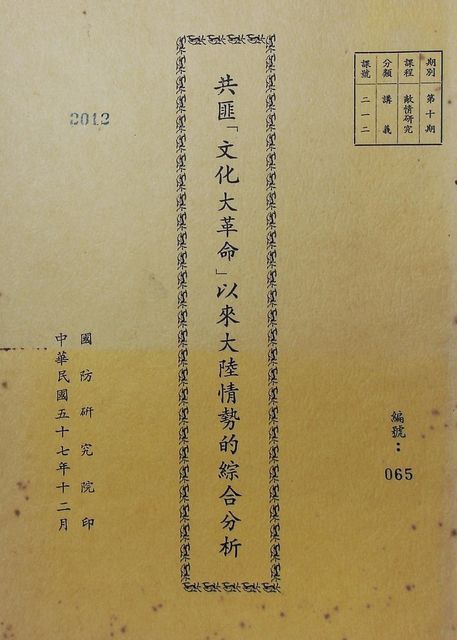 期別 第十期
課程 敵情研究
分類 講義
課號 二一二
編號：
065
共匪「文化大革命」以來大陸情勢的綜合分析
2012
國防研究院印
中華民國五十七年十二月